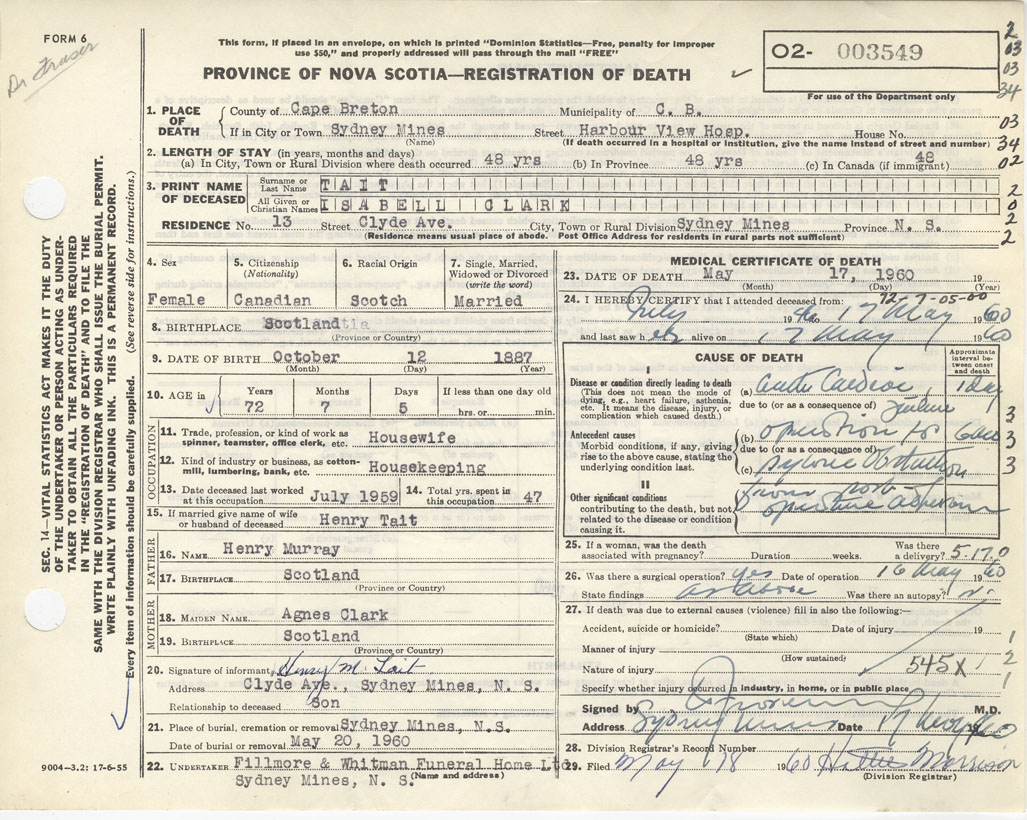 FORM 6
Dr Fraser
This form, if placed in an envelope, on which is printed "Dominion Statistics—Free, penalty for improper
use $50," and properly addressed will pass through the mail "FREE"
PROVINCE OF NOVA SCOTIA—REGISTRATION OF DEATH
O2- 003549
For use of the Department only
2
03
03
34
03
34
02
2
0
2
1. PLACE OF DEATH
County of Cape Breton Municipality of C. B.
If in City or Town Sydney Mines Street Harbour View Hosp. House No.
(Name) (If death occurred in a hospital or institution, give the name instead of street and number)
2. LENGTH OF STAY (in years, months and days)
(a) In City, Town or Rural Division where death occurred 48 yrs (b) In Province 48 yrs (c) In Canada (if immigrant) 48
3. PRINT NAME OF DECEASED
Surname or Last Name TAIT
All Given or Christian Names ISABELL CLARK
RESIDENCE No. 13 Street Clyde Ave. City, Town or Rural Division Sydney Mines Province N. S.
(Residence means usual place of abode. Post Office Address for residents in rural parts not sufficient)
4. Sex
Female
5. Citizenship
(Nationality)
Canadian
6. Racial Origin
Scotch
7. Single, Married,
Widowed or Divorced
(write the word)
Married
8. BIRTHPLACE Scotland
(Province or Country)
9. DATE OF BIRTH October 12 1887
(Month) (Day) (Year)
10. AGE in
Years Months Days If less than one day old
72 7 5 hrs. or min.
OCCUPATION
11. Trade, profession, or kind of work as
spinner, teamster, office clerk, etc. Housewife
12. Kind of industry or business, as cotton-
mill, lumbering, bank, etc. Housekeeping
13. Date deceased last worked
at this occupation July 1959
14. Total yrs. spent in
this occupation 47
15. If married give name of wife
or husband of deceased Henry Tait
FATHER
16. NAME Henry Murray
17. BIRTHPLACE Scotland
(Province or Country)
MOTHER
18. MAIDEN NAME Agnes Clark
19. BIRTHPLACE Scotland
(Province or Country)
20. Signature of informant Henry M. Tait
Address Clyde Ave., Sydney Mines, N. S.
Relationship to deceased Son
21. Place of burial, cremation or removal Sydney Mines, N.S.
Date of burial or removal May 20, 1960
22. UNDERTAKER Fillmore & Whitman Funeral Home Ltd
Sydney Mines, N. S. (Name and address)
MEDICAL CERTIFICATE OF DEATH
23. DATE OF DEATH May 17, 1960 19
(Month) (Day) (Year)
72-7-05-00
24. I HEREBY CERTIFY that I attended deceased from:
July 19 to 17 May 1960
and last saw her alive on 17 May 1960
CAUSE OF DEATH
Approximate
interval between
onset
and death
I
Disease or condition directly leading to death
(This does not mean the mode of
dying, e.g., heart failure, asthenia,
etc. It means the disease, injury, or
complication which caused death.)
(a) acute Cardiac 1 day
due to (or as a consequence of) failure
Antecedent causes
Morbid conditions, if any, giving
rise to the above cause, stating the
underlying condition last.
(b) operation for
due to (or as a consequence of)
(c) pyloric obstruction
II
Other significant conditions
contributing to the death, but not
related to the disease or condition
causing it.
from post-
operative adhesions
3
3
3
25. If a woman, was the death
associated with pregnancy? Duration weeks.
Was there
a delivery? 5-17.0
26. Was there a surgical operation? yes Date of operation 16 May 1960
State findings as above Was there an autopsy?
27. If death was due to external causes (violence) fill in also the following:—
Accident, suicide or homicide? Date of injury 19
(State which)
Manner of injury
(How sustained)
Nature of injury 545X
1
2
1
Specify whether injury occurred in industry, in home, or in public place
Signed by M.D.
Address Sydney Mines Date 17 May 60
28. Division Registrar's Record Number
29. Filed May 18 1960 Hattie Morrison
(Division Registrar)
SEC. 14—VITAL STATISTICS ACT MAKES IT THE DUTY
OF THE UNDERTAKER OR PERSON ACTING AS UNDER-
TAKER TO OBTAIN ALL THE PARTICULARS REQUIRED
IN THE "REGISTRATION OF DEATH" AND TO FILE THE
SAME WITH THE DIVISION REGISTRAR WHO SHALL ISSUE THE BURIAL PERMIT.
WRITE PLAINLY WITH UNFADING INK. THIS IS A PERMANENT RECORD.
Every item of information should be carefully supplied. (See reverse side for instructions.)
9004—3.2: 17-6-55